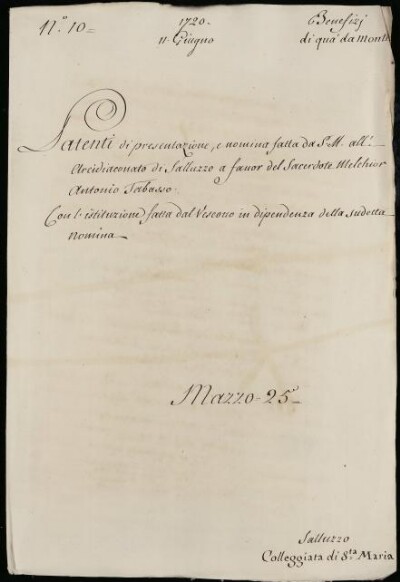 N.º 10=
1720.
11 Giugno
Benefizj
di quà da monti
Patenti di presentazione, e nomina fatta da S.M. all'
Arcidiaconato di Salluzzo a favor del Sacerdote Melchior
Antonio Tabasso.
Con l'istituzione fatta dal Vescovo in dipendenza della sudetta
nomina
Mazzo=25
Salluzzo
Colleggiata di S.ta Maria